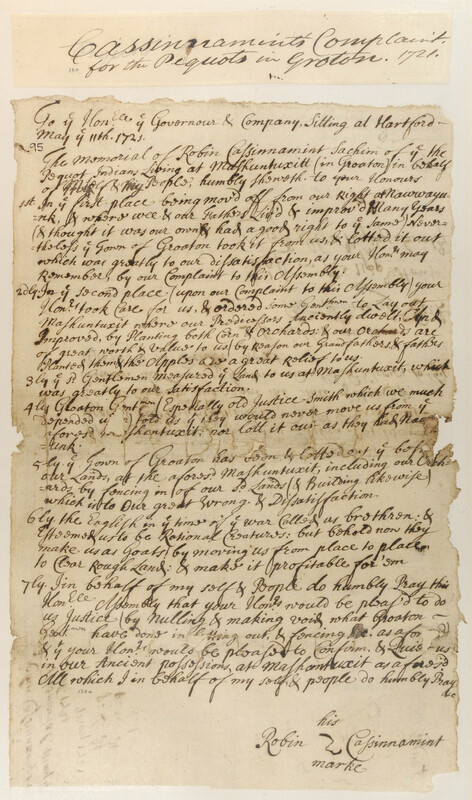 Cassinnamints Complaint.
for the Pequots in Groton. 1721.
To yᵉ Honᵇˡᵉ yᵉ Governour & Company. Sitting at Hartford
May yᵉ 11th. 1721.
95
The Memorial of Robin Cassinnamint Sachim of yᵉ the
Pequot Indians Living at Mashuntuxitt (in Groaton) in behalf
of My self & My People, humbly sheweth to your Honours
1st In yᵉ first place being mov'd off from our Right at Nawwayu
nk, & where wee & our Fathers Liv'd & improv'd Many Years
(& thought it was our own & had a good right to yᵉ Same) Never-
theless yᵉ Town of Groaton took it from us, & lotted it out
which was greatly to our dissatisfaction, as your Honʳˢ may
Remember, by our Complaint to this Assembly.
2dly In yᵉ second place (upon our Complaint to this Assembly) your
Honʳˢ took Care for us, & ordered some Gentᵐᵉⁿ to Lay out
Mashuntuxit where our Predicesors Anciently dwelt. And
Improved, by Planting both Corn & Orchards: & our Orchards are
of great worth & Vallue to us by reason our Grandfathers & fathers
Planted them & the Apples are a great Relief to us.
3ly yᵉ sᵈ Gentlemen measured yᵉ Land to us at Mashuntuxit, which
was greatly to our Satisfaction.
4ly Groaton Gentᵐᵉⁿ (Especially old Justice Smith which we much
depended told us yᵗ they would never move us from yᵉ
aforesᵈ Mashuntuxit: nor lott it out as they had Naw
unk.
5ly yᵉ Town of Groaton has been & lotted out yᵉ best
our Lands, at the aforesᵈ Mashuntuxit, including our Orch
ards by fencing in (of our sᵈ Lands) & Building likewise)
which is to Our great Wrong & Dissatisfaction.
6ly the English in yᵉ time of yᵉ war Called us brethren: &
Esteemed us to be Rational Creatures: but behold now they
make us as Goats by moving us from place to place
to Clear rough Land: & make it profitable for 'em
7ly I in behalf of my self & People do humbly Pray this
Honᵇˡᵉ Assembly that your Honʳˢ would be pleas'd to do
us Justice (by Nulling & making void what Groaton
Gentᵐᵉⁿ have done in Lotting out, & fencing &c as afor
& yᵗ your Honʳˢ would be pleased to Confirm, & Quiet us
in our Ancient possessions, at Mashantuxit as aforesᵈ
All which I in behalf of my self & people do humbly Pray
&c
his
Robin Cassinnamint
marke